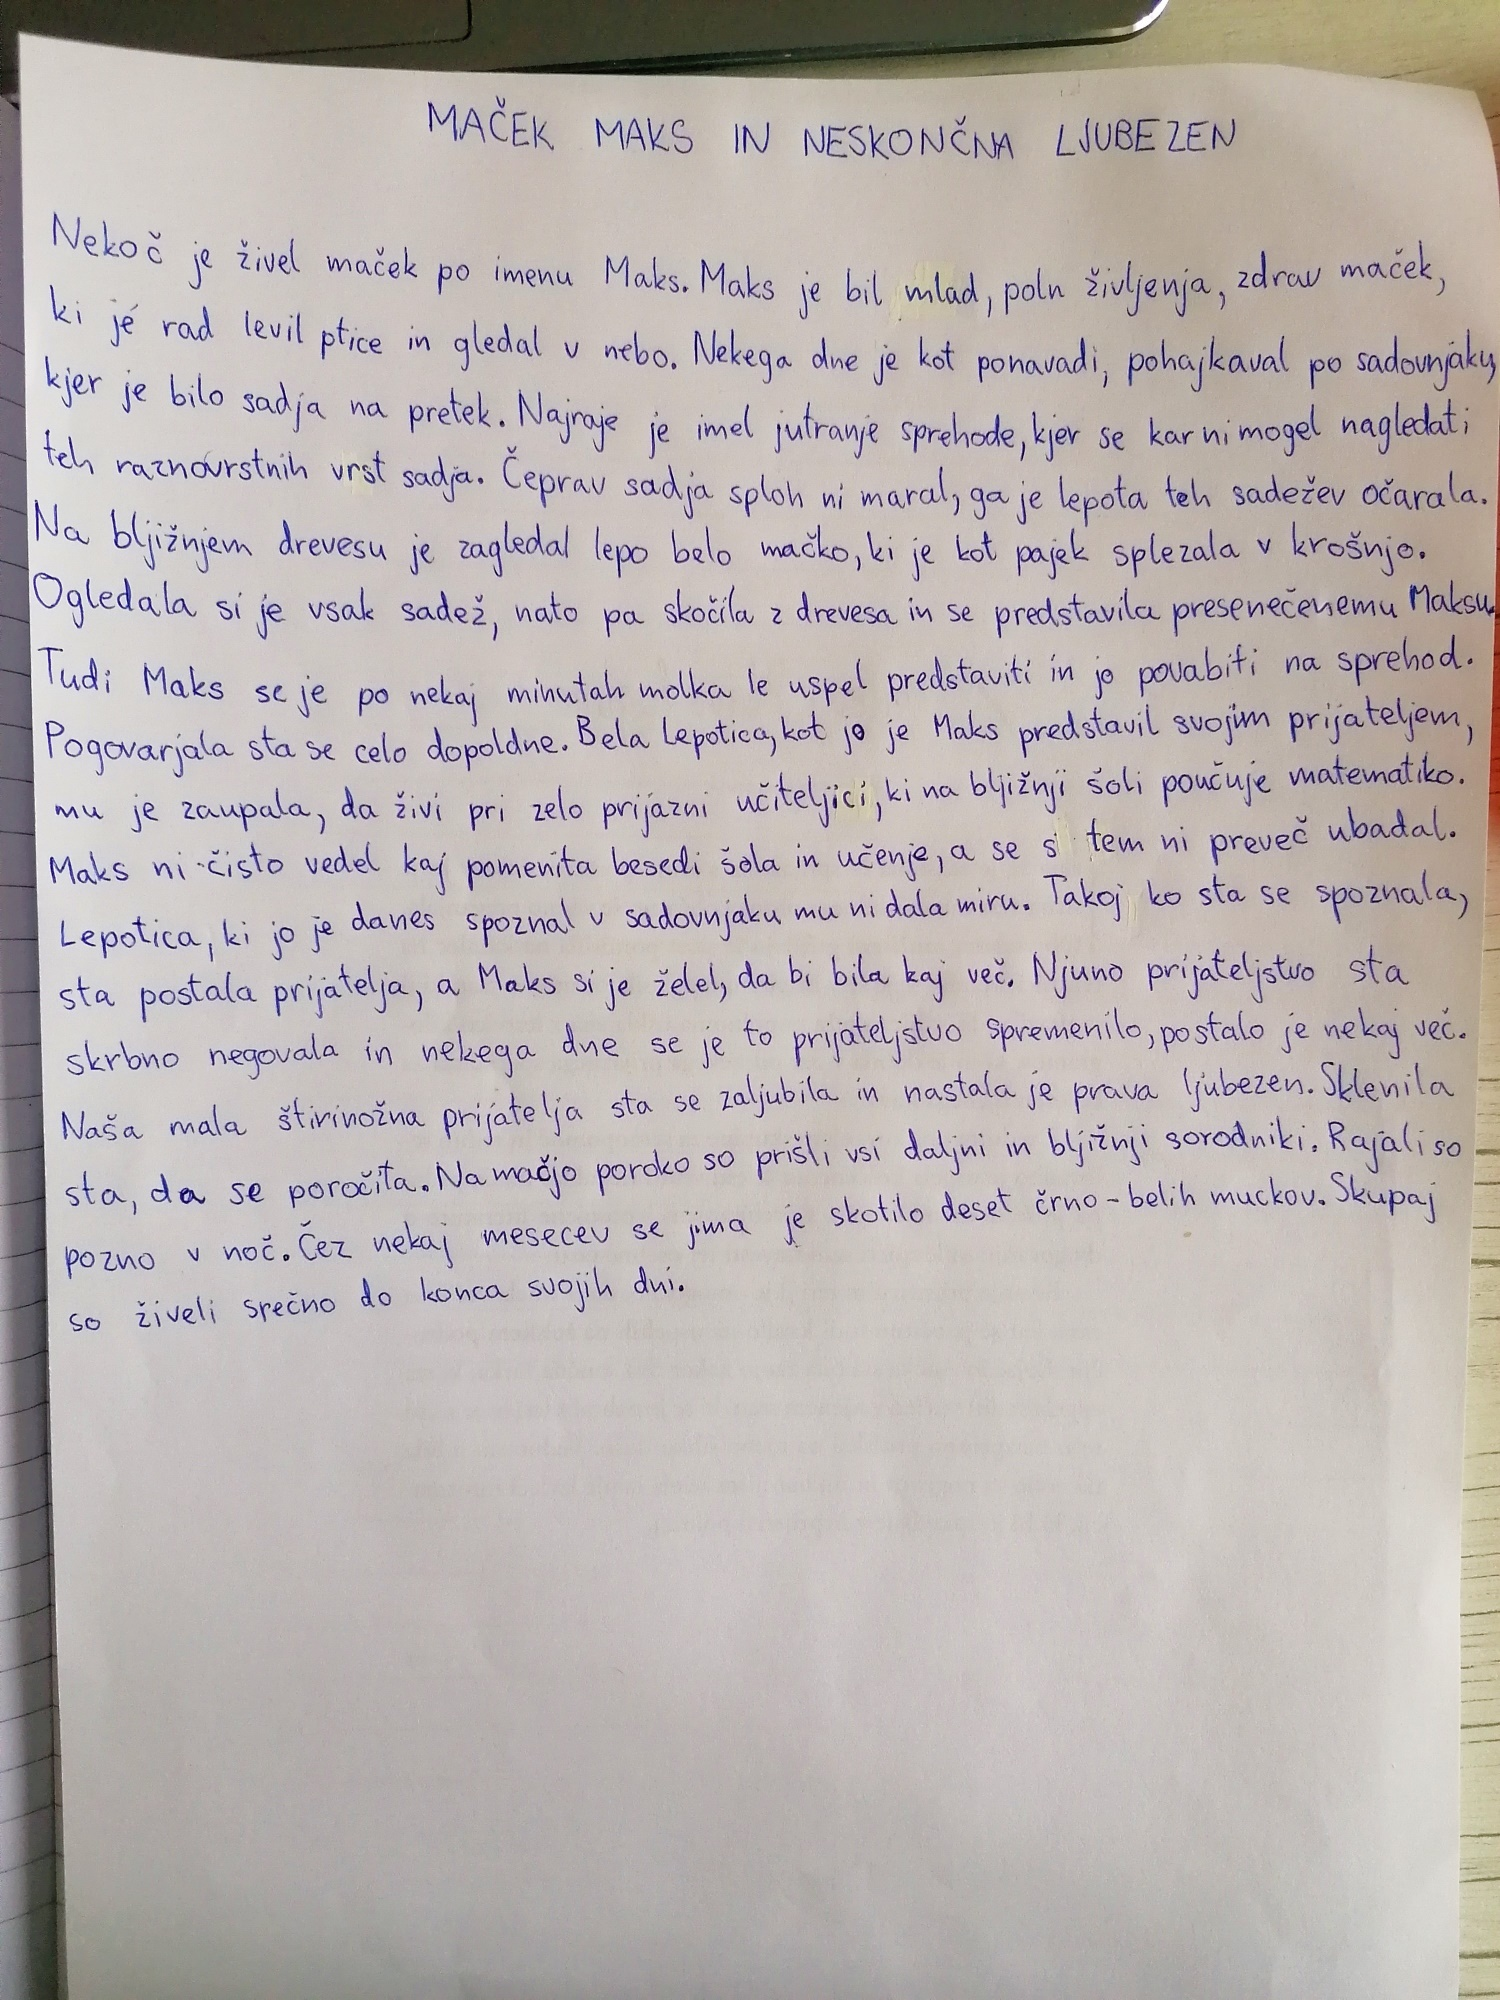 MAČEK MAKS IN NESKONČNA LJUBEZEN
Nekoč je živel maček po imenu Maks. Maks je bil mlad, poln življenja, zdrav maček,
ki je rad levil ptice in gledal v nebo. Nekega dne je kot ponavadi, pohajkaval po sadovnjaku,
kjer je bilo sadja na pretek. Najraje je imel jutranje sprehode, kjer se kar ni mogel nagledati
teh raznovrstnih vrst sadja. Čeprav sadja sploh ni maral, ga je lepota teh sadežev očarala.
Na bljižnjem drevesu je zagledal lepo belo mačko, ki je kot pajek splezala v krošnjo.
Ogledala si je vsak sadež, nato pa skočila z drevesa in se predstavila presenečenemu Maksu.
Tudi Maks se je po nekaj minutah molka le uspel predstaviti in jo povabiti na sprehod.
Pogovarjala sta se celo dopoldne. Bela Lepotica, kot jo je Maks predstavil svojim prijateljem,
mu je zaupala, da živi pri zelo prijazni učiteljici, ki na bljižnji šoli poučuje matematiko.
Maks ni čisto vedel kaj pomenita besedi šola in učenje, a se s tem ni preveč ubadal.
Lepotica, ki jo je danes spoznal v sadovnjaku mu ni dala miru. Takoj ko sta se spoznala,
sta postala prijatelja, a Maks si je želel, da bi bila kaj več. Njuno prijateljstvo sta
skrbno negovala in nekega dne se je to prijateljstvo spremenilo, postalo je nekaj več.
Naša mala štirinožna prijatelja sta se zaljubila in nastala je prava ljubezen. Sklenila
sta, da se poročita. Na mačjo poroko so prišli vsi daljni in bljižnji sorodniki. Rajali so
pozno v noč. Čez nekaj mesecev se jima je skotilo deset črno-belih muckov. Skupaj
so živeli srečno do konca svojih dni.